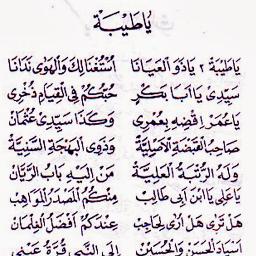 يَاطَيْبَةْ
يَاطَيْبَةْ ٢ يَاذَوَ الْعَيَانَا اُشْتُغْنَالِكْ وَالْهَوٰى نَدَانَا
سَيِّدِيْ يَا اَبَا بَكْرٍ حُبُّكُمْ فِي الْقِيَامِ ذُخْرِيْ
يَاعُمَرْ اِقْضِهِ بِعُمْرِيْ وَكَذَا سَيِّدِيْ عُثْمَانْ
صَاحِبَ الْقَبْضَةِ الْاَصْلِيَّةْ وَذَوِى الْبَهْجَةِ السَّنِيَّةْ
وَلَهُ الرُّتْبَةُ الْعَلِيَّةْ مَنْ اِلَيْهِ بَابُ الرَّيَّانْ
يَاعَلِى يَا ابْنَ اَبِيْ طَالِبْ مِنْكُمُ الْمَصْدَرُ الْمَوَاهِبْ
هَلْ تَرٰى هَلْ اُرٰى لِحَاجِبْ عِنْدَكُمْ اَفْضَلُ الْغِلْمَانْ
اَسْيَادِ الْحَسَنْ وَالْحُسَيْنْ اِلَى النَّبِيْ قُرَّةُ عَيْنِيْ